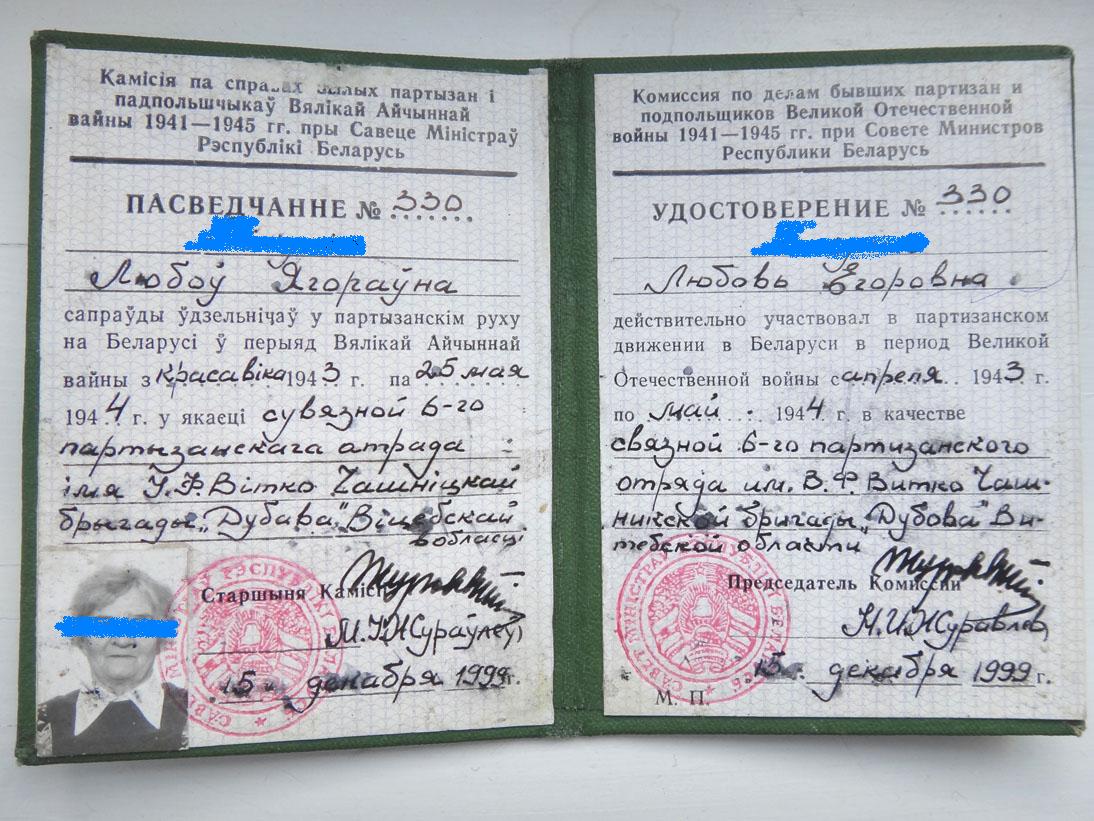 Камісія па справах былых партызан і
падпольшчыкаў Вялікай Айчыннай
вайны 1941—1945 гг. пры Савеце Міністраў
Рэспублікі Беларусь
ПАСВЕДЧАННЕ № 330
Любоў Ягораўна
сапраўды ўдзельнічаў у партызанскім руху
на Беларусі ў перыяд Вялікай Айчыннай
вайны з красавіка 1943 г. па 25 мая
1944 г. у якаеці сувязной 6-го
партызанскага атрада
імя У.Ф. Вітко Чашніцкай
брыгады „Дубава" Віцебскай
вобласці
Старшыня Камісіі
М.І. Жураўлеў
15 декабря 1999 г.
Комиссия по делам бывших партизан и
подпольщиков Великой Отечественной
войны 1941—1945 гг. при Совете Министров
Республики Беларусь
УДОСТОВЕРЕНИЕ № 330
Любовь Егоровна
действительно участвовал в партизанском
движении в Беларуси в период Великой
Отечественной войны с апреля 1943 г.
по май 1944 г. в качестве
связной 6-го партизанского
отряда им. В.Ф. Витко Чаш-
никской бригады „Дубова" Ви-
тебской области
Председатель Комиссии
Н.И. Журавлев
15 декабря 1999 г.
М. П.